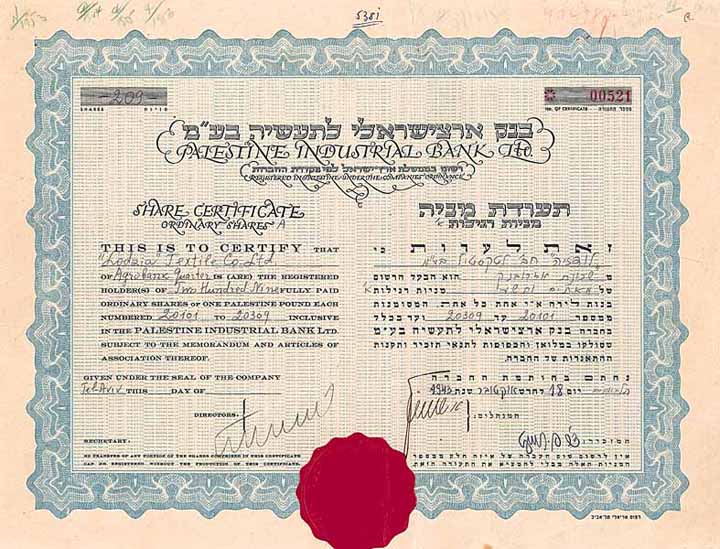 5381
-209-
SHARES
מניות
00521
No. OF CERTIFICATE
מספר התעודה
בנק ארצישראלי לתעשיה בע"מ
PALESTINE INDUSTRIAL BANK Ltd.
רשום בממשלת ארץ ישראל לפי פקודת החברות
REGISTERED IN PALESTINE UNDER THE COMPANIES ORDINANCE
SHARE CERTIFICATE
ORDINARY SHARES A
THIS IS TO CERTIFY THAT
"Lodzia" Textile Co. Ltd
OF Agrobank Quarter IS (ARE) THE REGISTERED
HOLDER(S) OF Two Hundred Nine FULLY PAID
ORDINARY SHARES OF ONE PALESTINE POUND EACH
NUMBERED 20101 TO 20309 INCLUSIVE
IN THE PALESTINE INDUSTRIAL BANK LTD.
SUBJECT TO THE MEMORANDUM AND ARTICLES OF
ASSOCIATION THEREOF.
GIVEN UNDER THE SEAL OF THE COMPANY
Tel Aviv THIS DAY OF
DIRECTORS:
SECRETARY:
NO TRANSFER OF ANY PORTION OF THE SHARES COMPRISED IN THIS CERTIFICATE
CAN BE REGISTERED WITHOUT THE PRODUCTION OF THIS CERTIFICATE.
תעודת מניה
מניות רגילות א'
זאת לעדות כי
מ שכונת אגרובנק הוא הבעל הרשום
של מאתים ותשע מניות רגילות א'
בנות לירה א"י אחת כל אחת, המסומנות
במספר 20101 עד 20309 ועד בכלל
בחברת בנק ארצישראלי לתעשיה בע"מ
שסולקו במלואן והכפופות לתנאי תזכיר ותקנות
ההתאגדות של החברה.
נחתם בחותמת החברה
יום 18 לחדש אוקטובר שנת 1943
המנהלים:
המזכיר:
אין לרשום שום העברה של איזה חלק שבמספר
המניות האלה מבלי להמציא את התעודה הזאת.
דפוס אריאלי תל-אביב